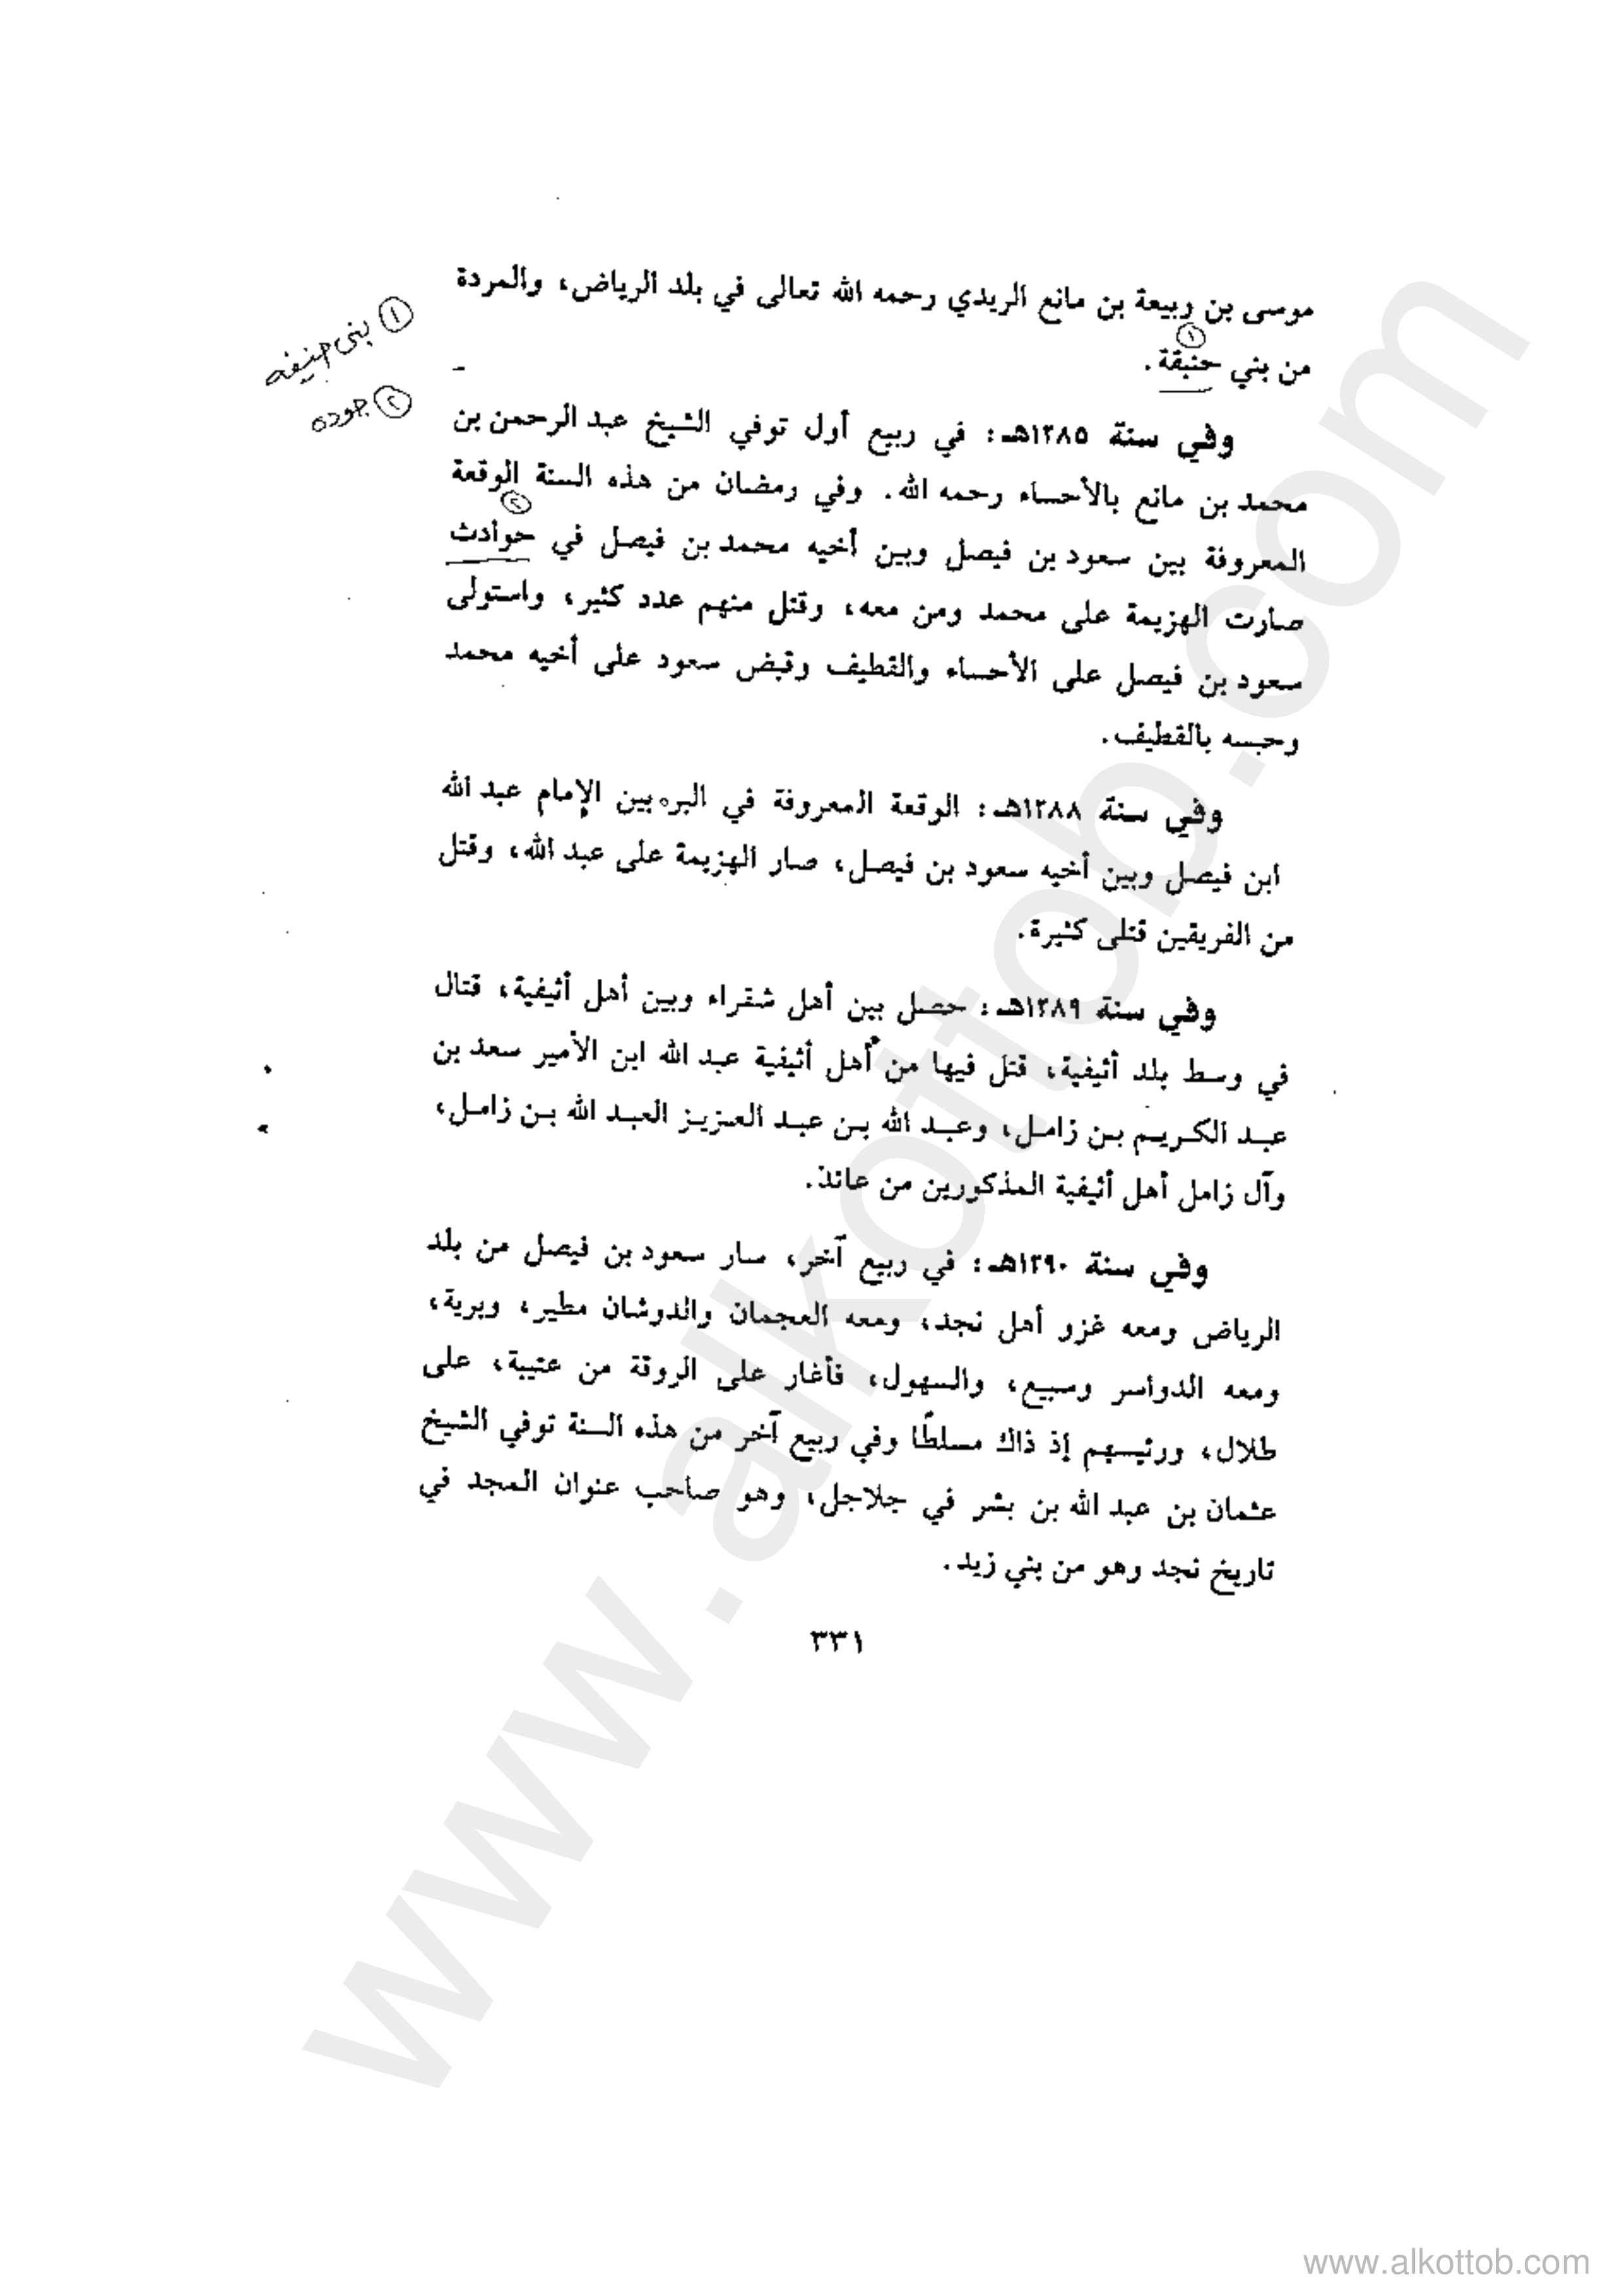 موسى بن ربيعة بن مانع الريدي رحمه الله تعالى في بلد الرياض، والمردة
من بني حنيقة.
① بنى حنيفه
② جوده
وفي سنة ١٢٨٥هـ: في ربيع أول توفي الشيخ عبد الرحمن بن
محمد بن مانع بالأحساء رحمه الله. وفي رمضان من هذه السنة الوقعة
المعروفة بين سعود بن فيصل وبين أخيه محمد بن فيصل في حوادث
صارت الهزيمة على محمد ومن معه، وقتل منهم عدد كثير، واستولى
سعود بن فيصل على الأحساء والقطيف وقبض سعود على أخيه محمد
وحبسه بالقطيف.
وفي سنة ١٢٨٨هـ: الوقعة المعروفة في البره بين الإمام عبد الله
ابن فيصل وبين أخيه سعود بن فيصل، صار الهزيمة على عبد الله، وقتل
من الفريقين قتلى كثيرة.
وفي سنة ١٢٨٩هـ: حصل بين أهل شقراء وبين أهل أثيفية، قتال
في وسط بلد أثيفية، قتل فيها من أهل أثيفية عبد الله ابن الأمير سعد بن
عبد الكريم بن زامل، وعبد الله بن عبد العزيز العبد الله بن زامل،
وآل زامل أهل أثيفية المذكورين من عائذ.
وفي سنة ١٢٩٠هـ: في ربيع آخر، سار سعود بن فيصل من بلد
الرياض ومعه غزو أهل نجد، ومعه العجمان والدوشان مطير، وبرية،
ومعه الدواسر وسبيع، والسهول، فأغار على الروقة من عتيبة، على
طلال، ورئيسهم إذ ذاك مسلطًا وفي ربيع آخر من هذه السنة توفي الشيخ
عثمان بن عبد الله بن بشر في جلاجل، وهو صاحب عنوان المجد في
تاريخ نجد وهو من بني زيد.
٣٣١
www.alkottob.com
www.alkottob.com